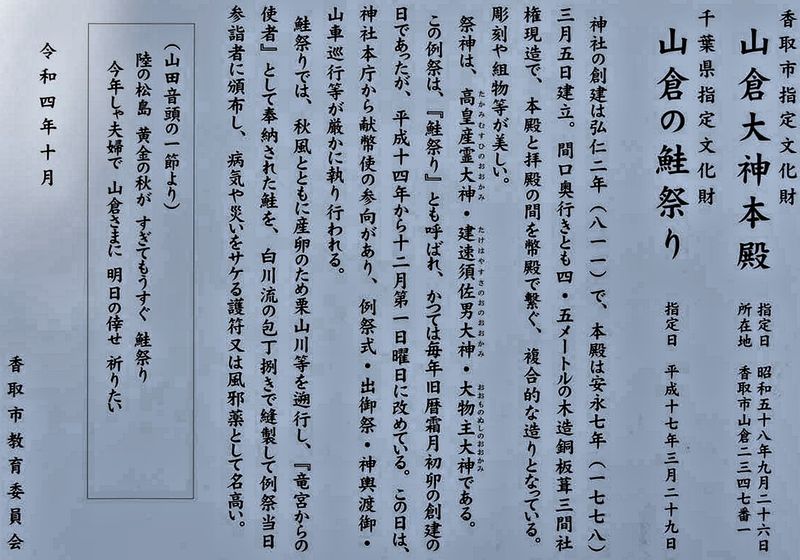 香取市指定文化財
山倉大神本殿
指定日 昭和五十八年九月二十六日
所在地 香取市山倉二三四七番一
千葉県指定文化財
山倉の鮭祭り
指定日 平成十七年三月二十九日
神社の創建は弘仁二年（八一一）で、本殿は安永七年（一七七八）
三月五日建立。間口奥行きとも四・五メートルの木造銅板葺三間社
権現造で、本殿と拝殿の間を幣殿で繋ぐ、複合的な造りとなっている。
彫刻や組物等が美しい。
祭神は、高皇産霊大神・建速須佐男大神・大物主大神である。
たかみむすひのおおかみ
たけはやすさのおのおおかみ
おおものぬしのおおかみ
この例祭は、『鮭祭り』とも呼ばれ、かつては毎年旧暦霜月初卯の創建の
日であったが、平成十四年から十二月第一日曜日に改めている。この日は、
神社本庁から献幣使の参向があり、例祭式・出御祭・神輿渡御・
山車巡行等が厳かに執り行われる。
鮭祭りでは、秋風とともに産卵のため栗山川等を遡行し、『竜宮からの
使者』として奉納された鮭を、白川流の包丁捌きで縫製して例祭当日
参詣者に頒布し、病気や災いをサケる護符又は風邪薬として名高い。
（山田音頭の一節より）
陸の松島 黄金の秋が すぎてもうすぐ 鮭祭り
今年しゃ夫婦で 山倉さまに 明日の倖せ 祈りたい
令和四年十月
香取市教育委員会